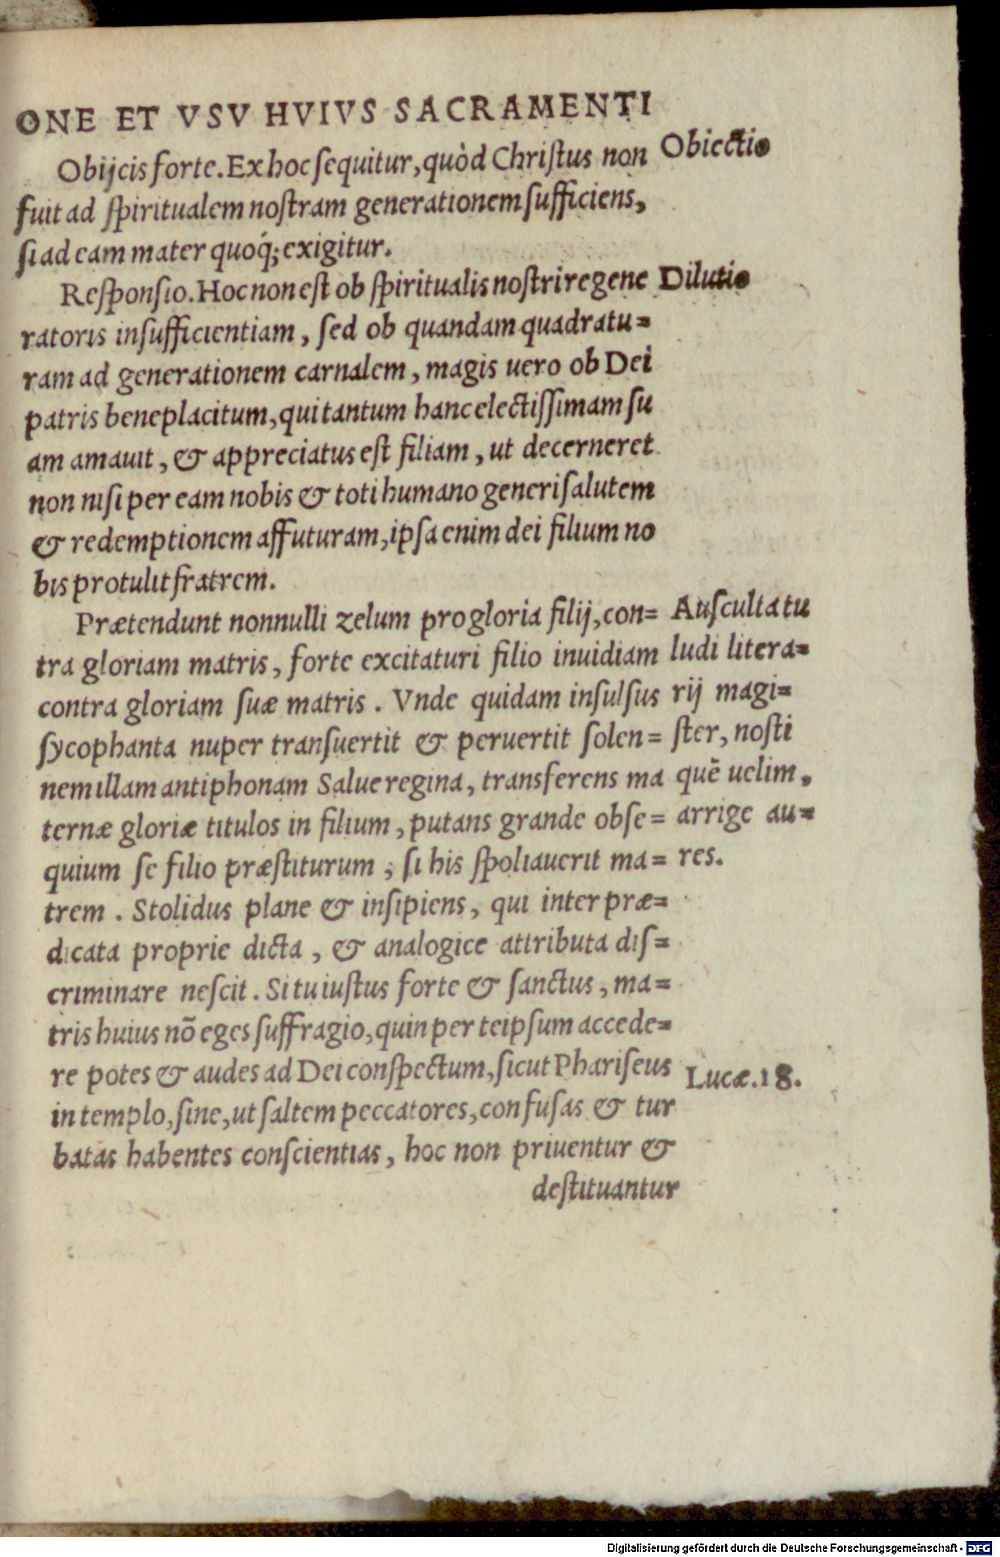 ONE ET VSV HVIVS SACRAMENTI
Obijcis forte. Ex hoc sequitur, quòd Christus non
Obiectio
fuit ad spiritualem nostram generationem sufficiens,
si ad eam mater quoq́; exigitur.
Responsio. Hoc non est ob spiritualis nostri regene
Dilutio
ratoris insufficientiam, sed ob quandam quadratu=
ram ad generationem carnalem, magis uero ob Dei
patris beneplacitum, qui tantum hanc electissimam su
am amauit, & appreciatus est filiam, ut decerneret
non nisi per eam nobis & toti humano generi salutem
& redemptionem affuturam, ipsa enim dei filium no
bis protulit fratrem.
Prætendunt nonnulli zelum pro gloria filij, con=
tra gloriam matris, forte excitaturi filio inuidiam
contra gloriam suæ matris. Vnde quidam insulsus
sycophanta nuper transuertit & peruertit solen=
nem illam antiphonam Salue regina, transferens ma
ternæ gloriæ titulos in filium, putans grande obse=
quium se filio præstiturum, si his spoliauerit ma=
trem. Stolidus plane & insipiens, qui inter præ=
dicata proprie dicta, & analogice attributa dis=
criminare nescit. Si tu iustus forte & sanctus, ma=
tris huius nõ eges suffragio, quin per teipsum accede=
re potes & audes ad Dei conspectum, sicut Phariseus
in templo, sine, ut saltem peccatores, confusas & tur
batas habentes conscientias, hoc non priuentur &
destituantur
Ausculta tu
ludi litera=
rij magi=
ster, nosti
quẽ uelim,
arrige au=
res.
Lucæ.18.
Digitalisierung gefördert durch die Deutsche Forschungsgemeinschaft - DFG